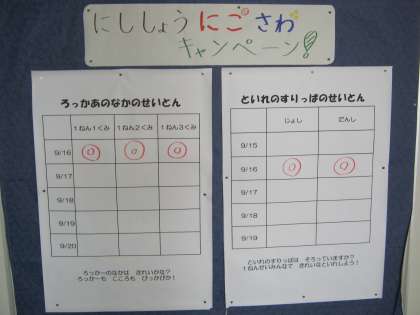 にししょうにこさわ
キャンペーン!
ろっかあのなかのせいとん
1ねん1くみ 1ねん2くみ 1ねん3くみ
9/16
9/17
9/18
9/19
9/20
ろっかーのなかは きれいかな?
ろっかーも こころも ぴっかぴか!
といれのすりっぱのせいとん
じょし だんし
9/15
9/16
9/17
9/18
9/19
といれのすりっぱは そろっていますか?
1ねんせいみんなで きれいなといれしよう!